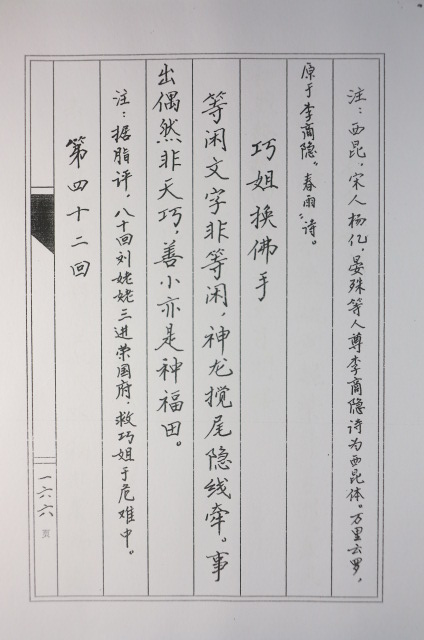 注：西昆，宋人杨亿，晏殊等人尊李商隐诗为西昆体。万里云罗，
原于李商隐“春雨”诗。
巧姐换佛手
等闲文字非等闲，神龙搅尾隐线牵。事
出偶然非天巧，善小亦是神福田。
注：据脂评，八十回刘姥姥三进荣国府，救巧姐于危难中。
第四十二回
一六六
页